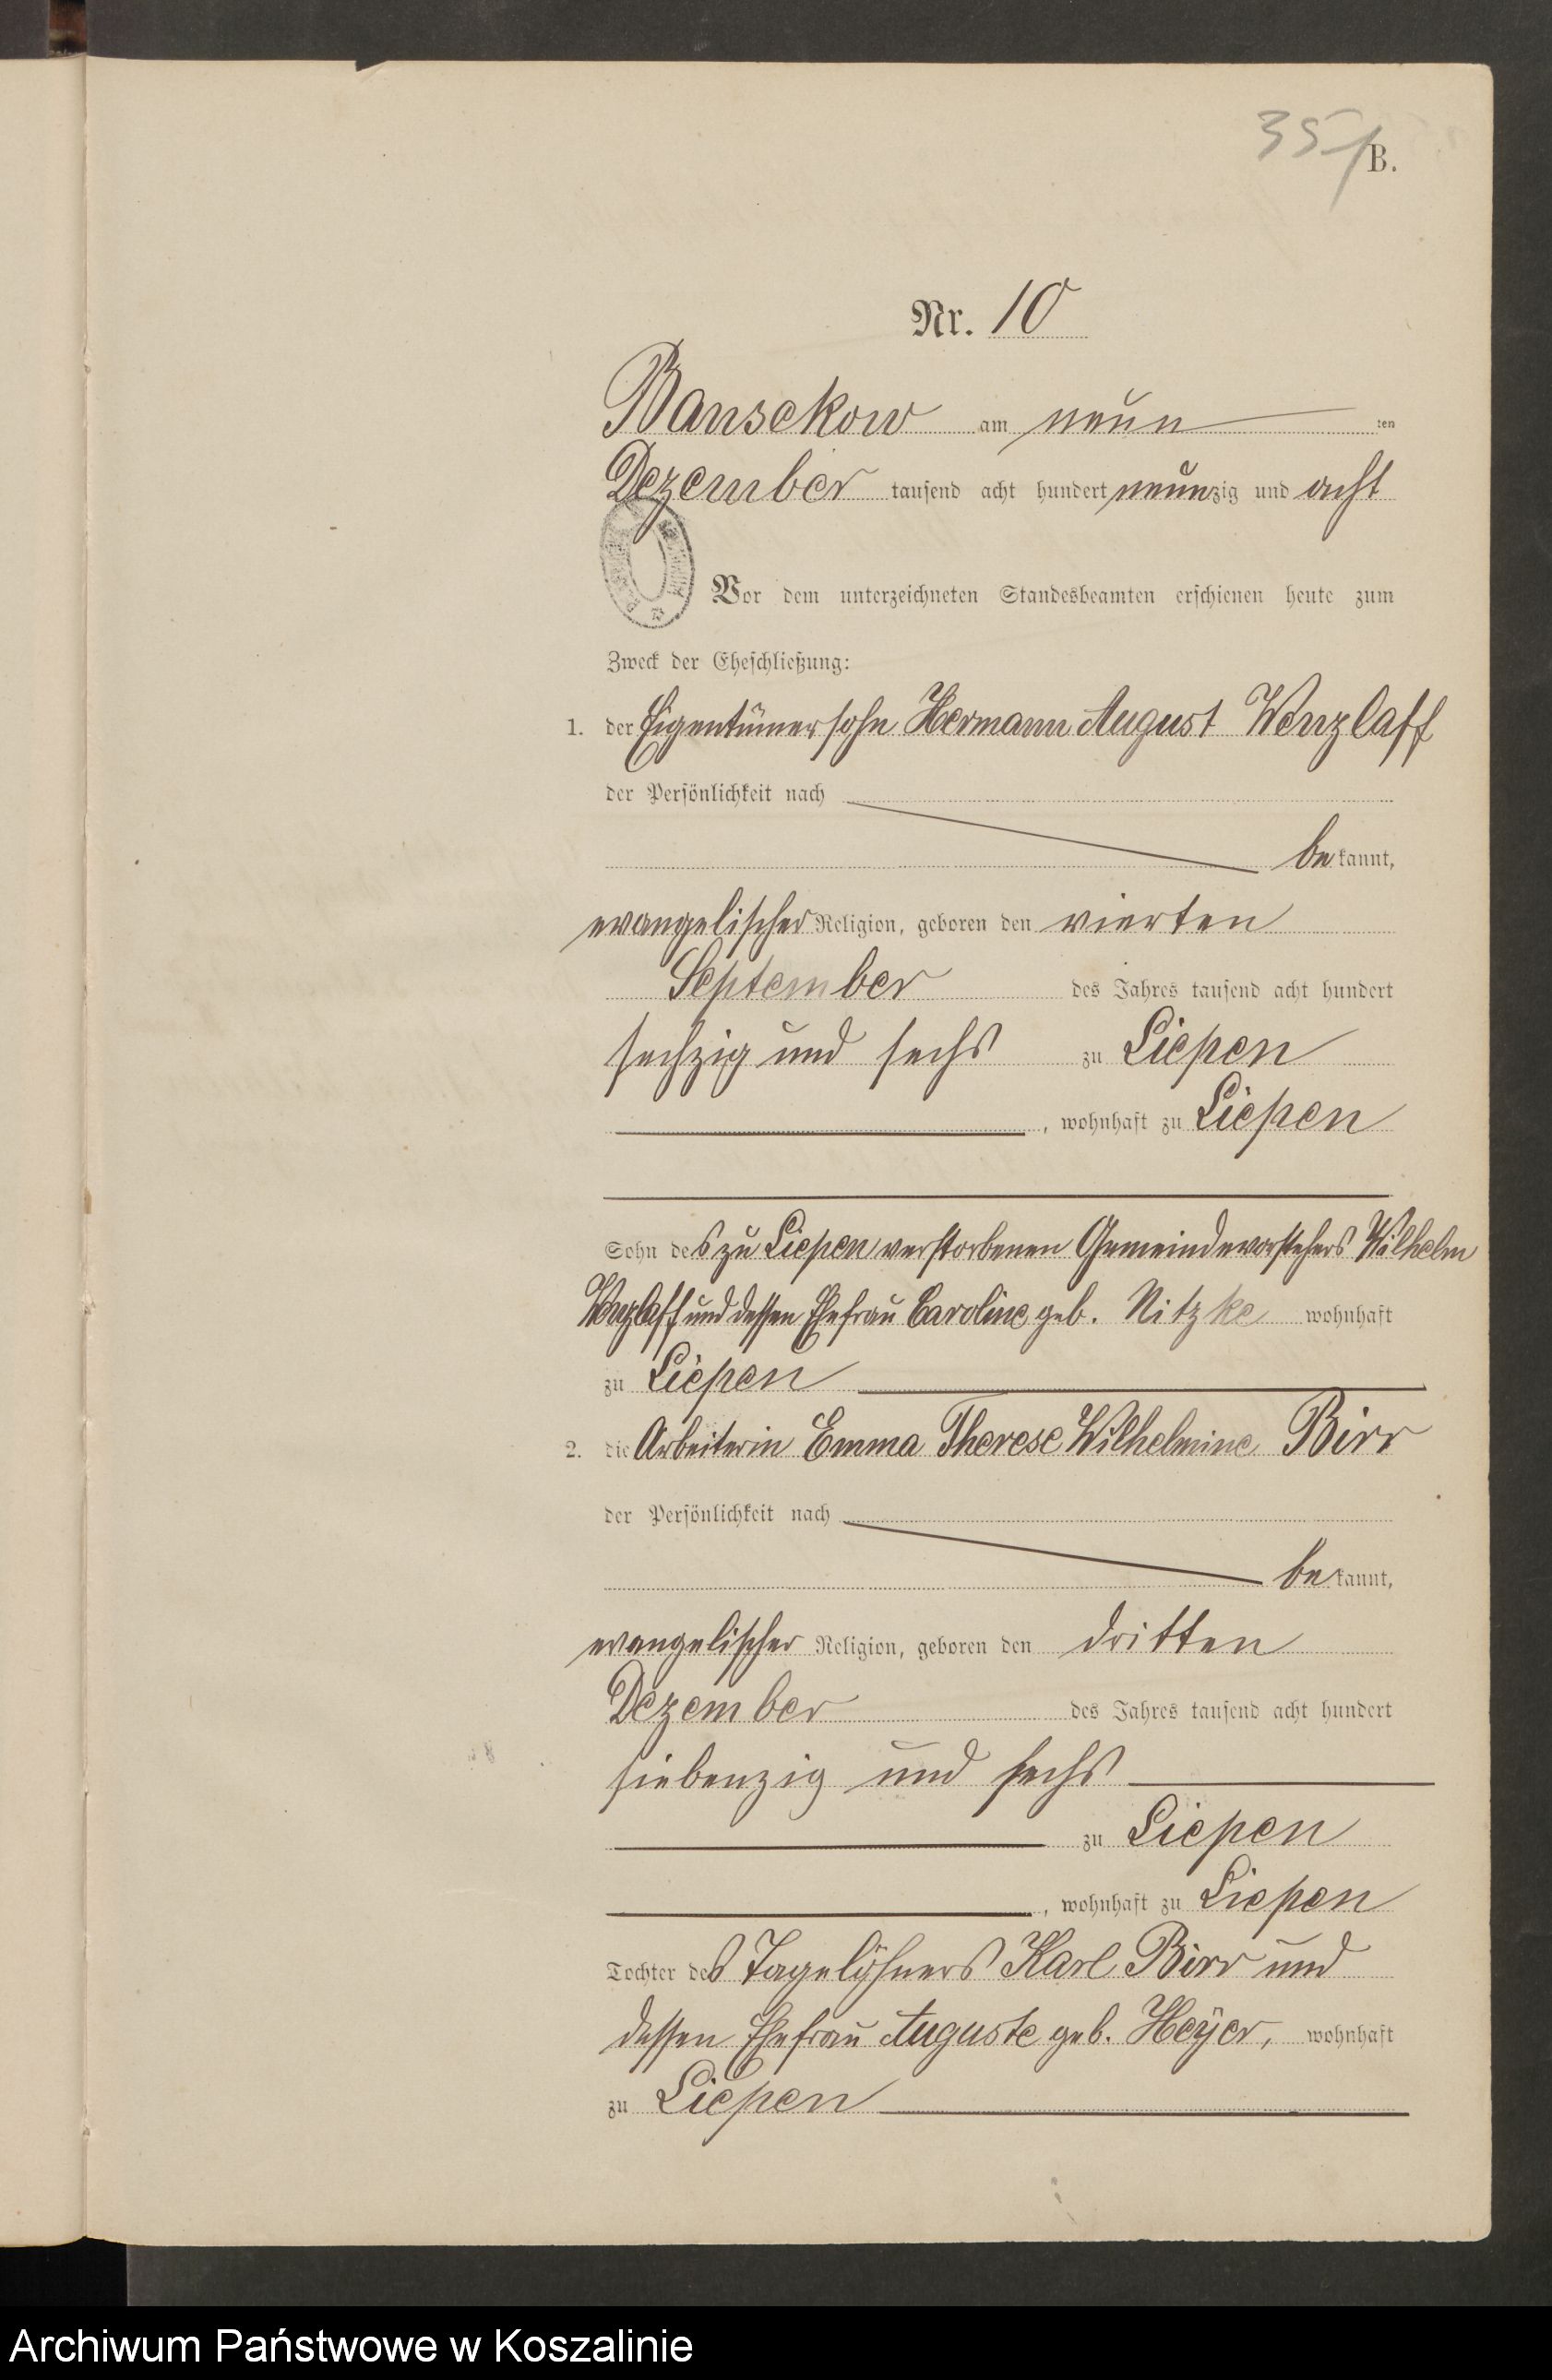 35
B.
Nr. 10
Bansekow am neun ten
Dezember tausend acht hundert neunzig und acht
Vor dem unterzeichneten Standesbeamten erschienen heute zum
Zweck der Eheschließung:
1. der Eigentümersohn Hermann August Wenzlaff
der Persönlichkeit nach
bekannt,
evangelischer Religion, geboren den vierten
September des Jahres tausend acht hundert
sechzig und sechs zu Liepen
, wohnhaft zu Liepen
Sohn des zu Liepen verstorbenen Gemeindevorstehers Wilhelm
Wenzlaff und dessen Ehefrau Caroline geb. Nitzke wohnhaft
zu Liepen
2. die Arbeiterin Emma Therese Wilhelmine Birr
der Persönlichkeit nach
bekannt,
evangelischer Religion, geboren den dritten
Dezember des Jahres tausend acht hundert
siebenzig und sechs
zu Liepen
, wohnhaft zu Liepen
Tochter des Tagelöhners Karl Birr und
dessen Ehefrau Auguste geb. Heÿer, wohnhaft
zu Liepen
Archiwum Państwowe w Koszalinie